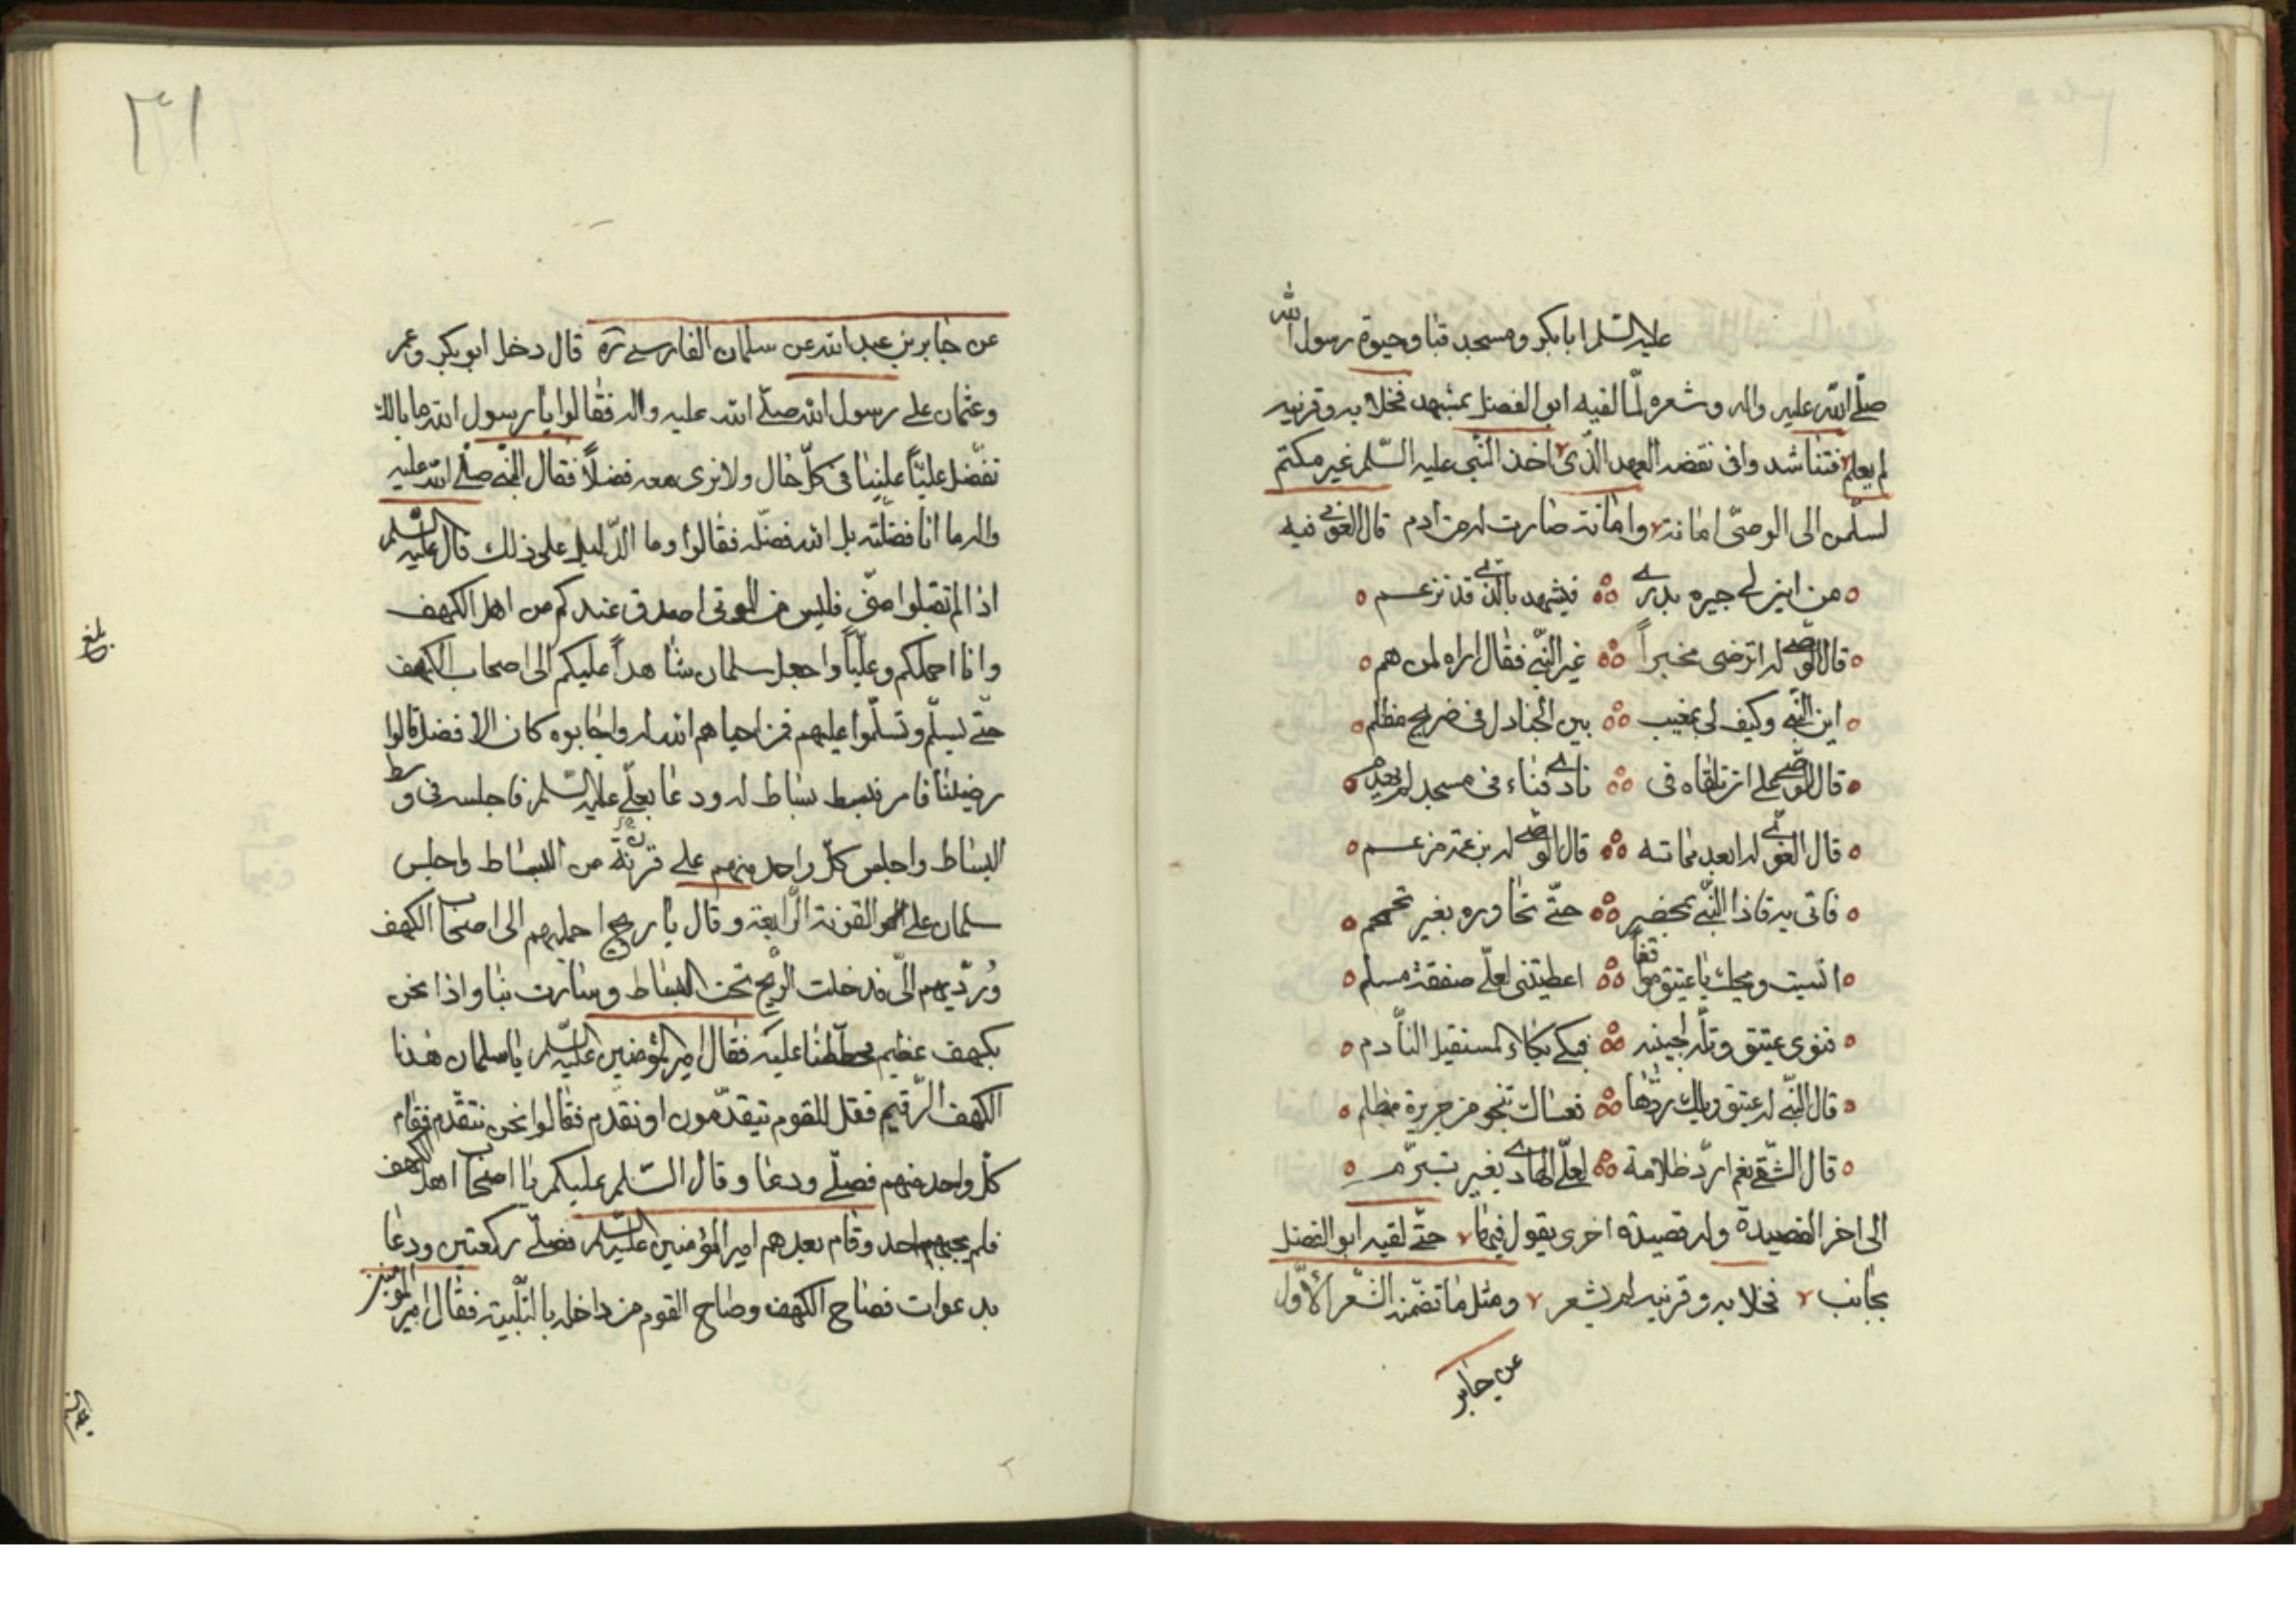 عليه السلم ابا بكر ومسجد قبا وحيوة رسول الله
صلّى الله عليه واله وشعره لمّا لقيه ابو الفصيل بمشهد فخلا به وقرنيه
لم يعلم فتناشد وافى نقضه العهد الذى اخذ النّبى عليه السّلم غير مكتم
لسلّمن الى الوصىّ امانة وامانة صارت له من ادم قال الغوى فيه
من اين لى جيره بدرى فيشهد بالذى قد تزعم
قال الوصى له اترضى مخبراً غير النّبى فقال اراه لمن هم
اين النّبى وكيف لى بمغيب بين الجنادل فى ضريح مظلم
قال الوصى على ان تلقاه فى نادى قباء فى مسجد لم يهدم
قال الغوى له ابعد مماته قال الوصى له بزعمه من عم
فاتى به فاذا النّبى بمحضر حتّى تحاوره بغير تحمحم
انسيت ويحك يا عتيق موثقا اعطيتنى لعلّى صفقة مسلم
فنوى عتيق وتلّه لجبينه فبكى بكاء لمستقيل النّادم
قال النّبى له عتيق ويلك ردّها نعساك تنجو من جريرة مظلم
قال الشّقى نعم اردّ ظلامة لعلىّ الهادى بغير تبرّم
الى اخر القصيدة وله قصيدة اخرى يقول فيها حتّى لقيه ابو الفضل
بجانب فخلا به وقرنيه لم يشعر ومثل ما تضمّنه الشّعر الاوّل
عن جابر
٣١
عن جابر بن عبد الله عن سلمان الفارسى ره قال دخل ابو بكر وعمر
وعثمان على رسول الله صلّى الله عليه واله فقالوا يا رسول الله ما بالك
تفضّل عليّاً علينا فى كلّ حال ولا نرى معه فضلاً فقال النّبى صلى الله عليه
واله ما انا فضّلته بل الله فضّله فقالوا وما الدّليل على ذلك قال عليه السّلم
اذا لم تقبلوا منّى فليس من الموتى اصدق عندكم من اهل الكهف
وانا احملكم وعليّاً واجعل سلمان شاهداً عليكم الى اصحاب الكهف
حتّى يسلّم وتسلّموا عليهم فمن احياهم الله له واجابوه كان الافضل قالوا
رضينا فامر فبسط بساط له ودعا بعلّى عليه السّلم فاجلسه فى وسط
البساط واجلس كلّ واحد منهم على قرنة من البساط واجلس
سلمان على القرنة الرّابعة وقال يا ريح احمليهم الى اصحاب الكهف
ورُدّيهم الىّ فدخلت الرّيح تحت البساط وسارت بنا واذا نحن
بكهف عظيم فحططنا عليه فقال امير المؤمنين عليه السّلم يا سلمان هذا
الكهف الرّقيم فقل للقوم يتقدّمون او نتقدم فقالوا نحن نتقدّم فقام
كلّ واحد منهم فصلّى ودعا وقال السّلم عليكم يا اصحاب اهل الكهف
فلم يجبهم احد وقام بعدهم امير المؤمنين عليه السّلم فصلّى ركعتين ودعا
بدعوات فصاح الكهف وصاح القوم من داخله بالتّلبية فقال امير المؤمنين
بلغ